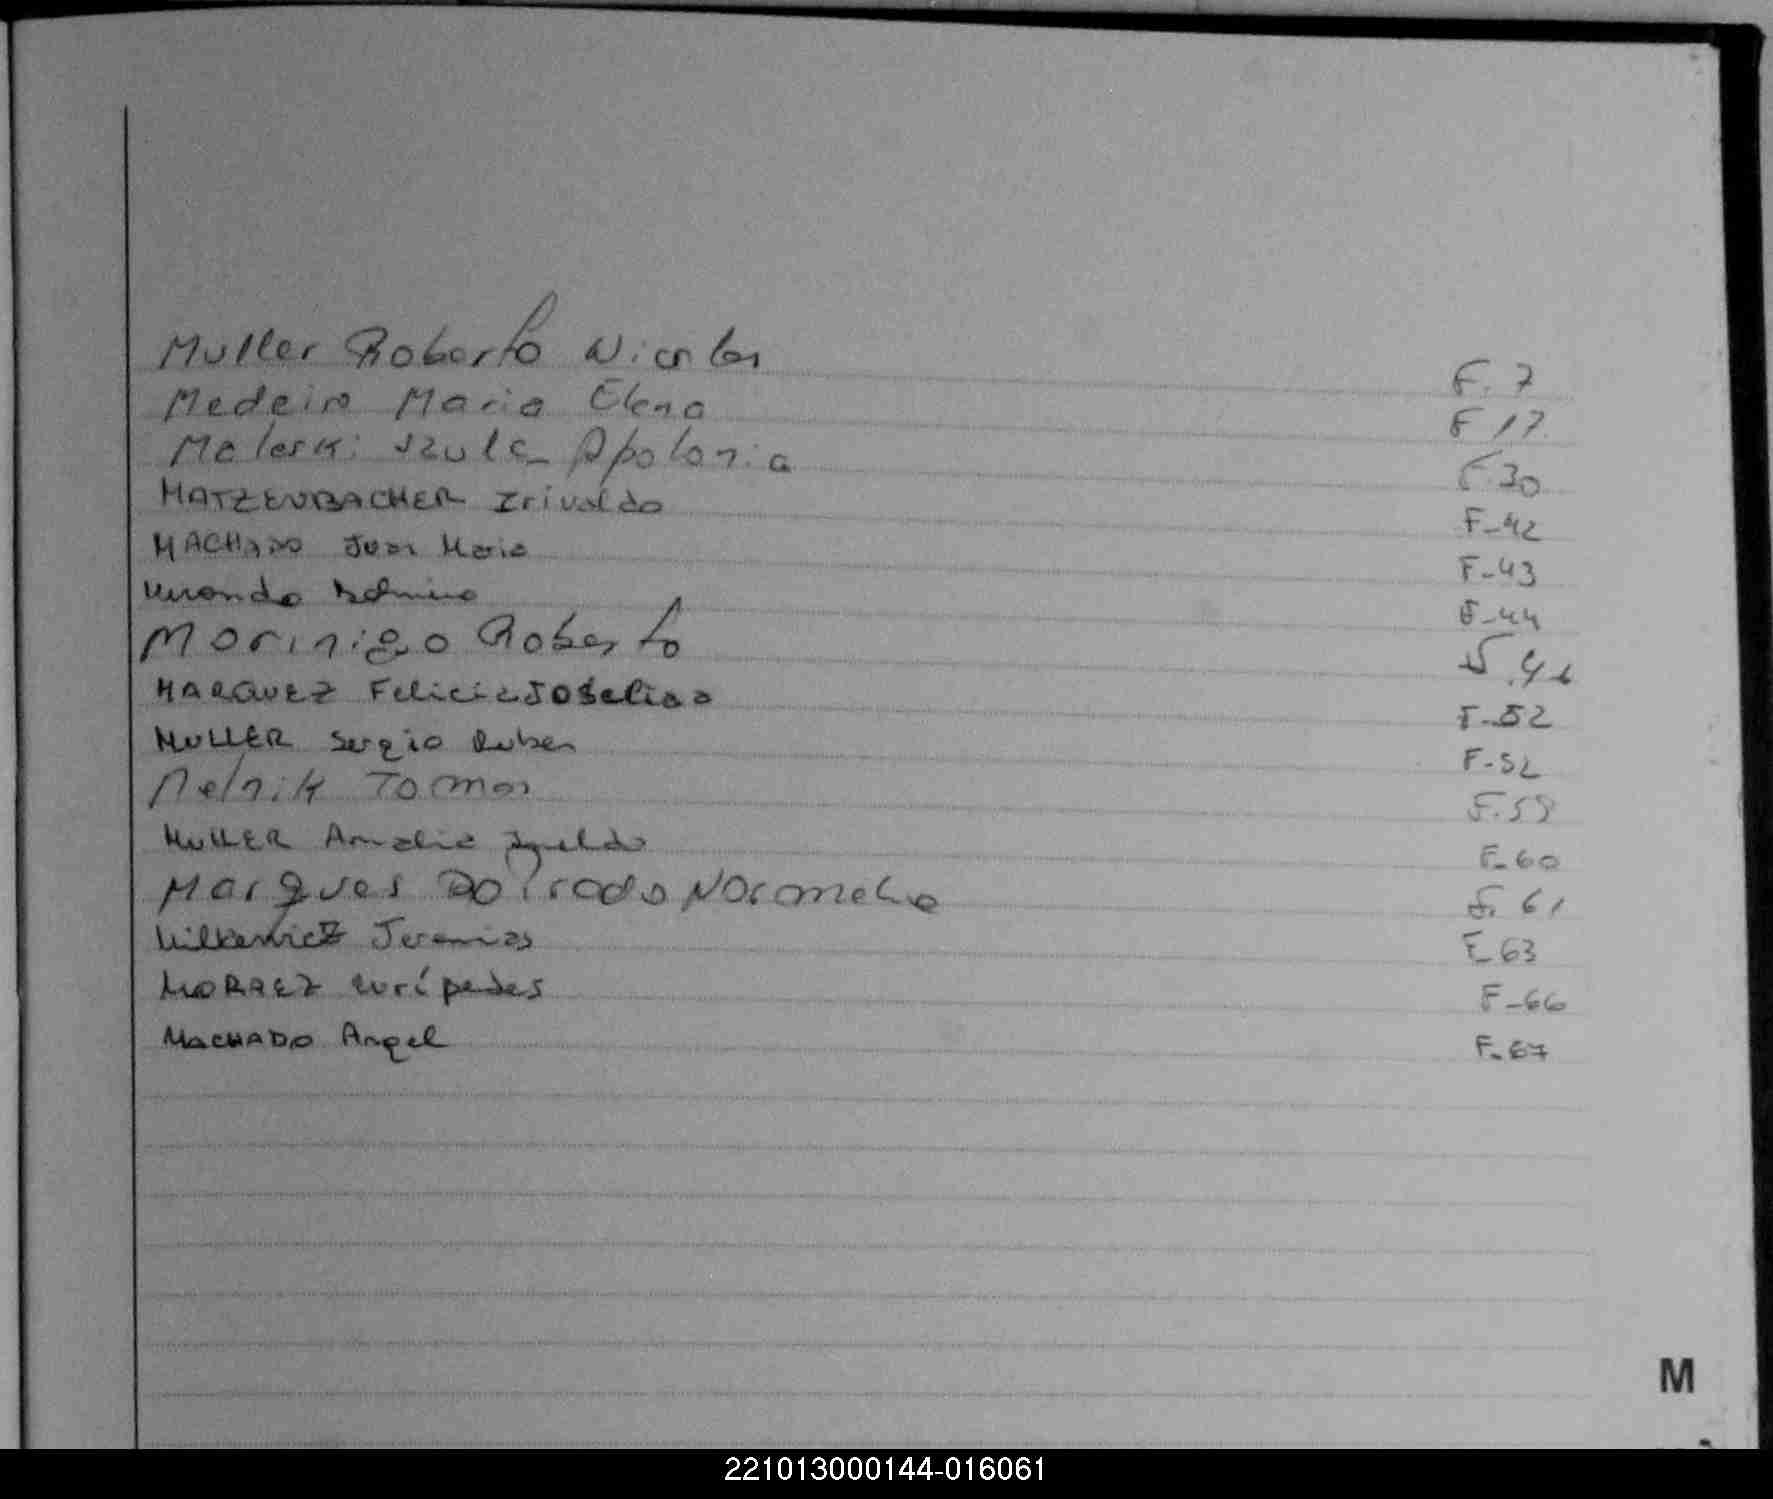 Muller Roberto Nicolas F. 7
Medeiro Maria Elena F 17
Maleski Szulc Apolonia F.30
MATZENBACHER Irivaldo F-42
MACHADO Juan Maria F-43
Miranda F-44
Morinigo Roberto F.46
MARQUEZ Felicia Joselina F-52
MULLER Sergio Ruben F-52
Melnik Tomas F.59
MULLER Amalia F-60
Marques Do Prado Noramelia F. 61
Milkewicz Jeremias F-63
MORAEZ Eurípedes F-66
MACHADO Angel F-67
M
221013000144-016061